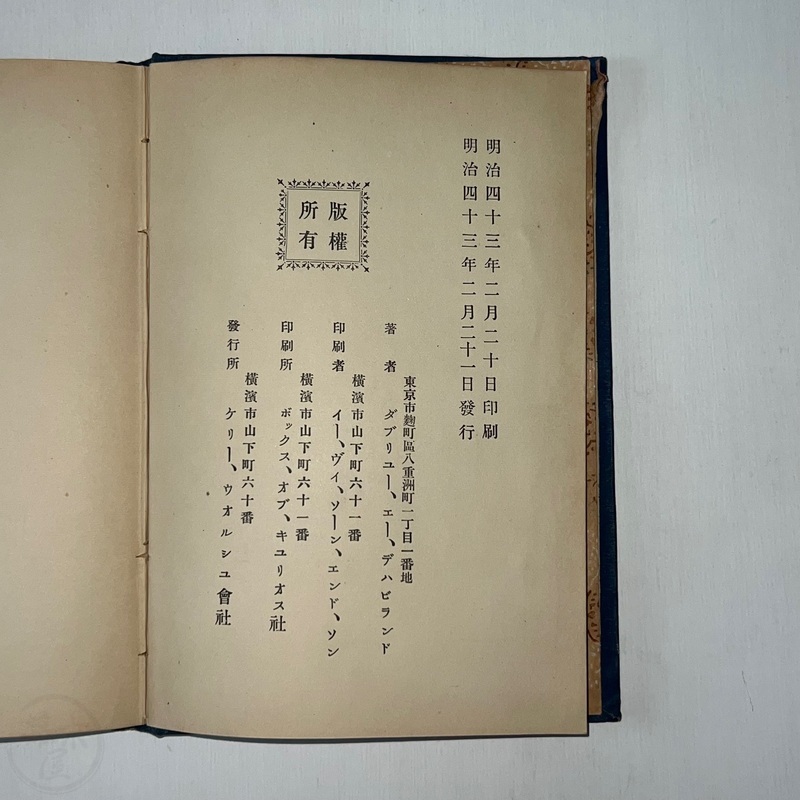 明治四十三年二月二十日印刷
明治四十三年二月二十一日發行
版權
所有
東京市麴町區八重洲町一丁目一番地
著者 ダブリユー、エー、デハビランド
横濱市山下町六十一番
印刷者 イー、ヴイ、ソーン、エンド、ソン
横濱市山下町六十一番
印刷所 ボックス、オブ、キユリオス社
横濱市山下町六十番
發行所 ケリー、ウオルシユ會社